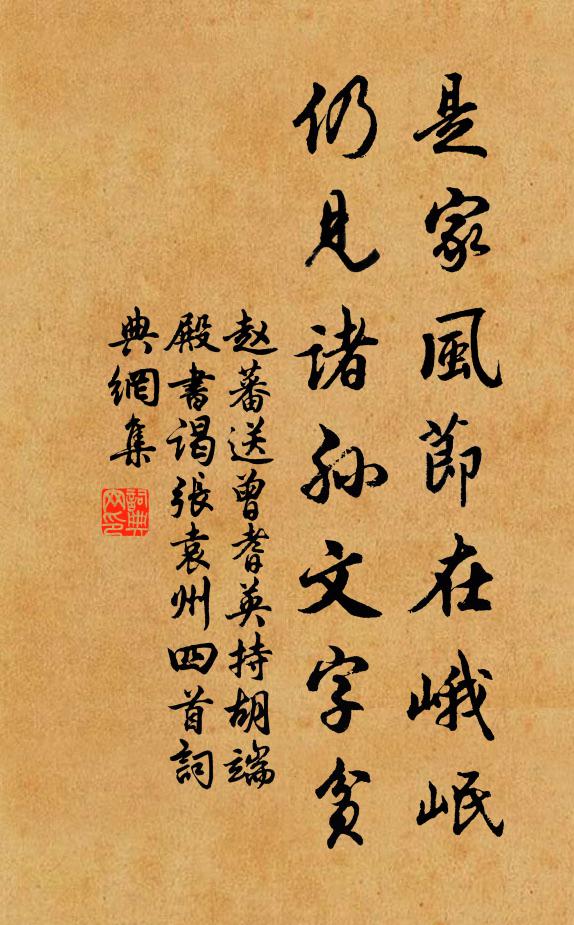 是家風節在峨岷
仍見諸孫文字貧
赵蕃送曾耆英持胡端
殿書谒張袁州四首詞
典網集
詞典網印